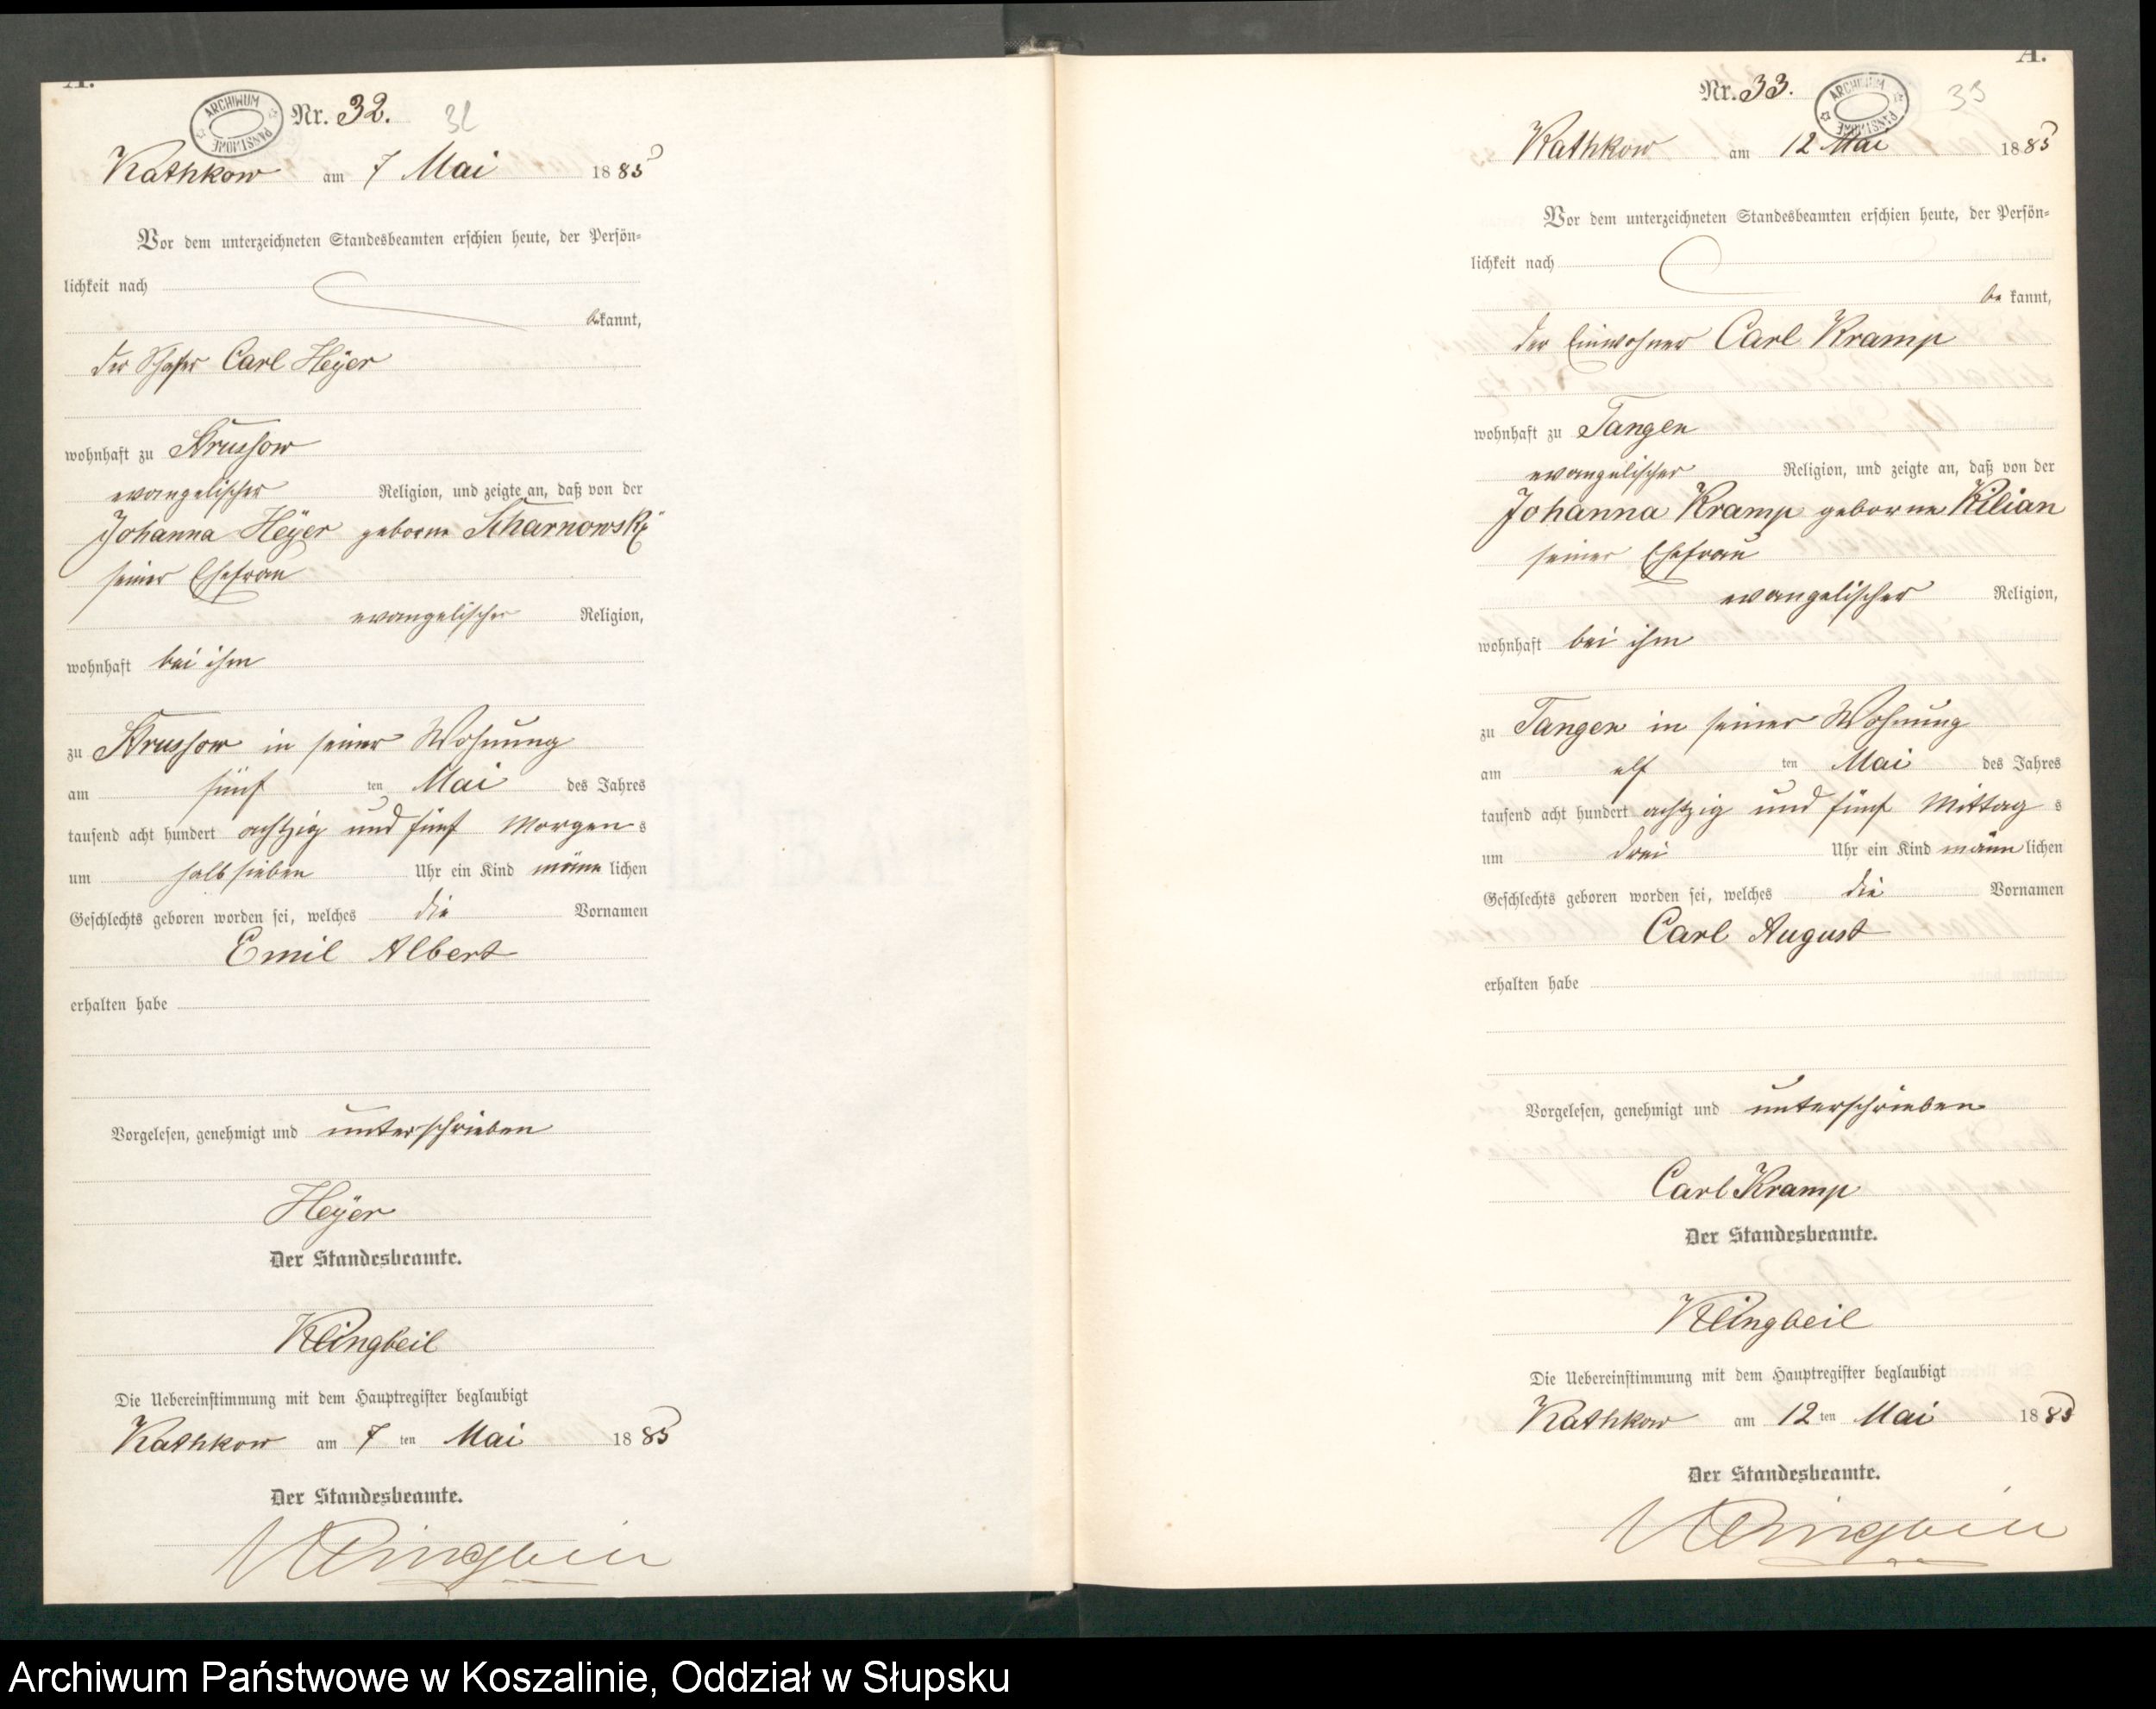 A.
ARCHIWUM PAŃSTWOWE
Nr. 32. 32
Kathkow am 7 Mai 1885
Vor dem unterzeichneten Standesbeamten erschien heute, der Persön-
lichkeit nach
bekannt,
der Schäfer Carl Heÿer
wohnhaft zu Krussow
evangelischer Religion, und zeigte an, daß von der
Johanna Heÿer geborne Scharnowskÿ
seiner Ehefrau
evangelischer Religion,
wohnhaft bei ihm
zu Krussow in seiner Wohnung
am fünf ten Mai des Jahres
tausend acht hundert achtzig und fünf Morgens
um halb sieben Uhr ein Kind männlichen
Geschlechts geboren worden sei, welches die Vornamen
Emil Albert
erhalten habe
Vorgelesen, genehmigt und unterschrieben
Heÿer
Der Standesbeamte.
Klingbeil
Die Uebereinstimmung mit dem Hauptregister beglaubigt
Kathkow am 7 ten Mai 1885
Der Standesbeamte.
Klingbeil
A.
Nr. 33. 33
ARCHIWUM PAŃSTWOWE
Kathkow am 12 Mai 1885
Vor dem unterzeichneten Standesbeamten erschien heute, der Persön-
lichkeit nach
bekannt,
der Einwohner Carl Kramp
wohnhaft zu Tangen
evangelischer Religion, und zeigte an, daß von der
Johanna Kramp geborne Kilian
seiner Ehefrau
evangelischer Religion,
wohnhaft bei ihm
zu Tangen in seiner Wohnung
am elf ten Mai des Jahres
tausend acht hundert achtzig und fünf Mittags
um drei Uhr ein Kind männlichen
Geschlechts geboren worden sei, welches die Vornamen
Carl August
erhalten habe
Vorgelesen, genehmigt und unterschrieben
Carl Kramp
Der Standesbeamte.
Klingbeil
Die Uebereinstimmung mit dem Hauptregister beglaubigt
Kathkow am 12 ten Mai 1885
Der Standesbeamte.
Klingbeil
Archiwum Państwowe w Koszalinie, Oddział w Słupsku